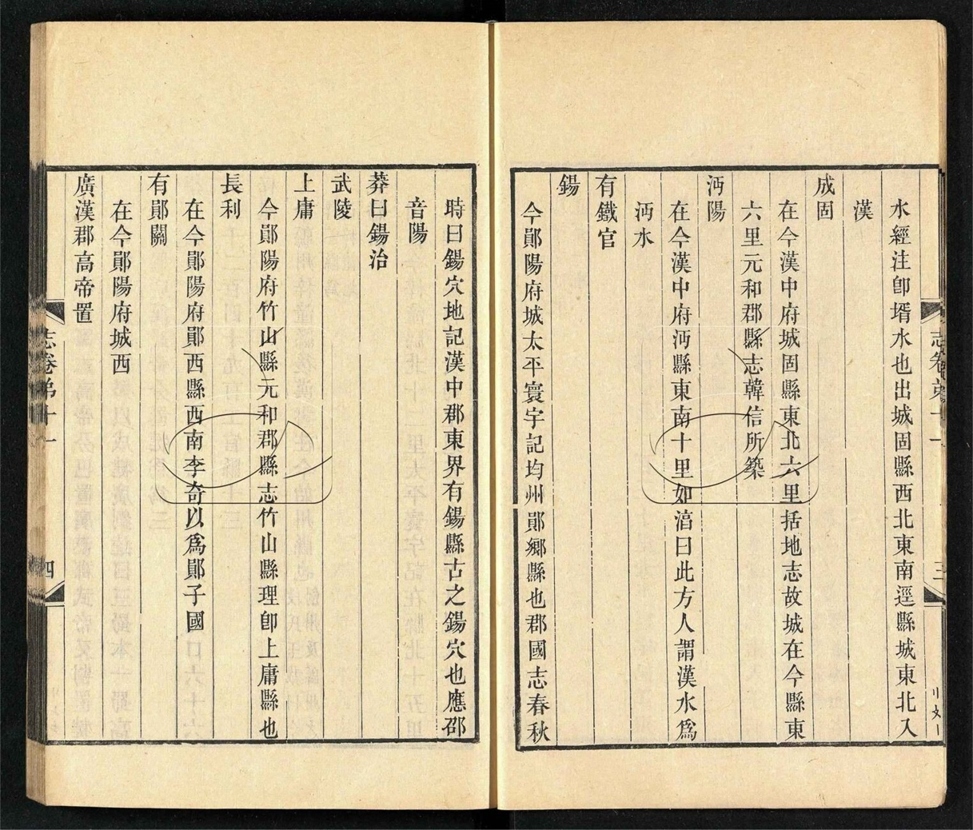 水經注卽壻水也出城固縣西北東南逕縣城東北入
漢
成固
在今漢中府城固縣東北六里括地志故城在今縣東
六里元和郡縣志韓信所築
沔陽
在今漢中府沔縣東南十里如湻曰此方人謂漢水爲
沔水
有鐵官
鍚
今鄖陽府城太平寰宇記均州鄖鄉縣也郡國志春秋
時曰鍚穴地記漢中郡東界有鍚縣古之鍚穴也應邵
音陽
莽曰鍚治
武陵
上庸
今鄖陽府竹山縣元和郡縣志竹山縣理卽上庸縣也
長利
在今鄖陽府鄖西縣西南李奇以爲鄖子國
有鄖關
在今鄖陽府城西
廣漢郡高帝置
志卷弟十一
四